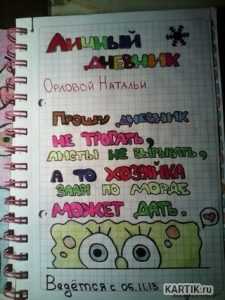 Личный
дневник
Орловой Натальи
Прошу дневник
не трогать,
листы не вырывать,
а то хозяйка
злая по морде
может дать.
Ведётся с 05.11.13
KARTIK.ru